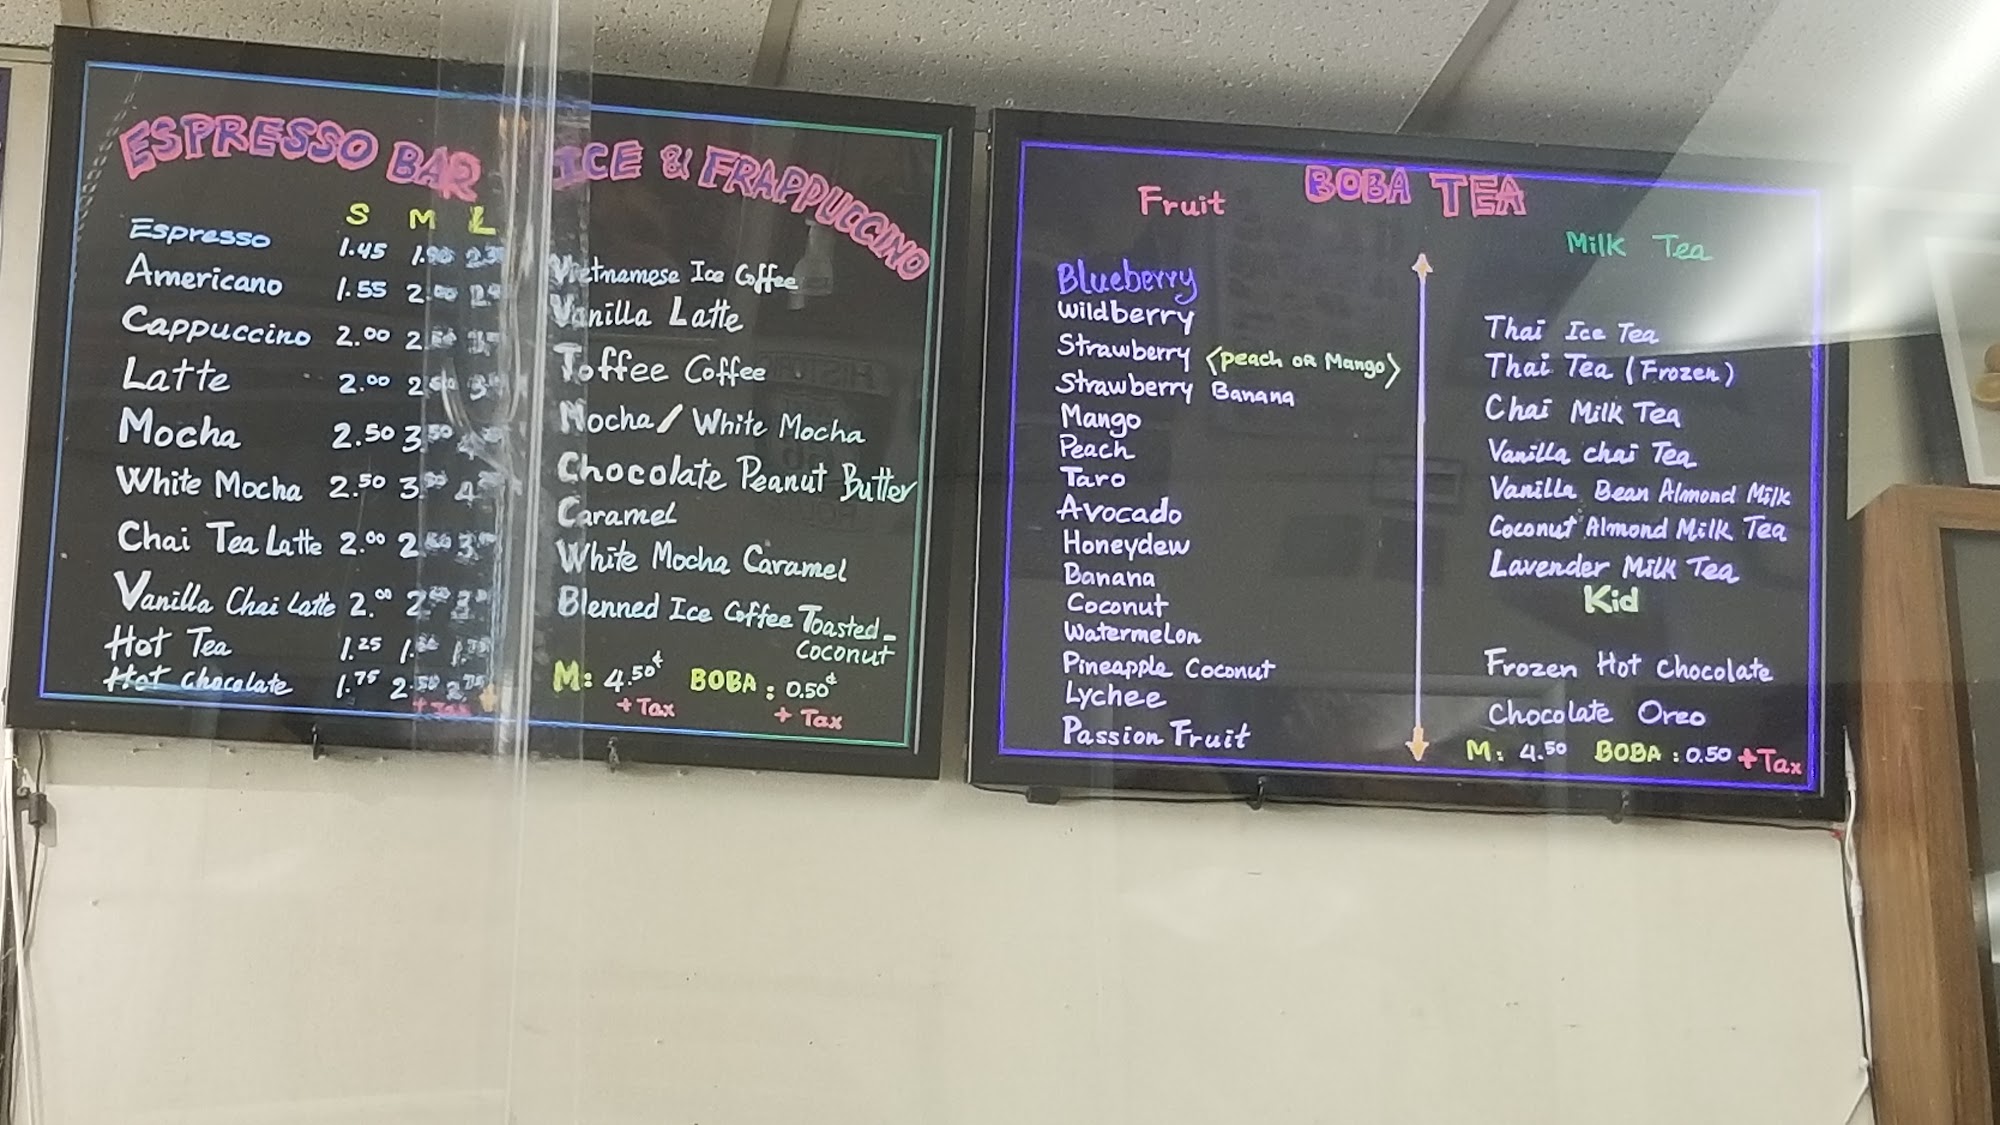 ESPRESSO BAR
S M L
Espresso 1.45
Americano 1.55
Cappuccino 2.00
Latte 2.00
Mocha 2.50 3.50
White Mocha 2.50
Chai Tea Latte 2.00
Vanilla Chai Latte 2.00
Hot Tea 1.25
Hot chocolate 1.75 2.50
+ Tax
ICE & FRAPPUCCINO
Vietnamese Ice Coffee
Vanilla Latte
Toffee Coffee
Mocha/ White Mocha
Chocolate Peanut Butter
Caramel
White Mocha Caramel
Blenned Ice Coffee Toasted-
Coconut
M: 4.50¢ BOBA: 0.50¢
+ Tax + Tax
BOBA TEA
Fruit
Blueberry
Wildberry
Strawberry <peach OR Mango>
Strawberry Banana
Mango
Peach
Taro
Avocado
Honeydew
Banana
Coconut
Watermelon
Pineapple Coconut
Lychee
Passion Fruit
Milk Tea
Thai Ice Tea
Thai Tea (Frozen)
Chai Milk Tea
Vanilla chai Tea
Vanilla Bean Almond Milk
Coconut Almond Milk Tea
Lavender Milk Tea
Kid
Frozen Hot Chocolate
Chocolate Oreo
M: 4.50 BOBA: 0.50 + Tax